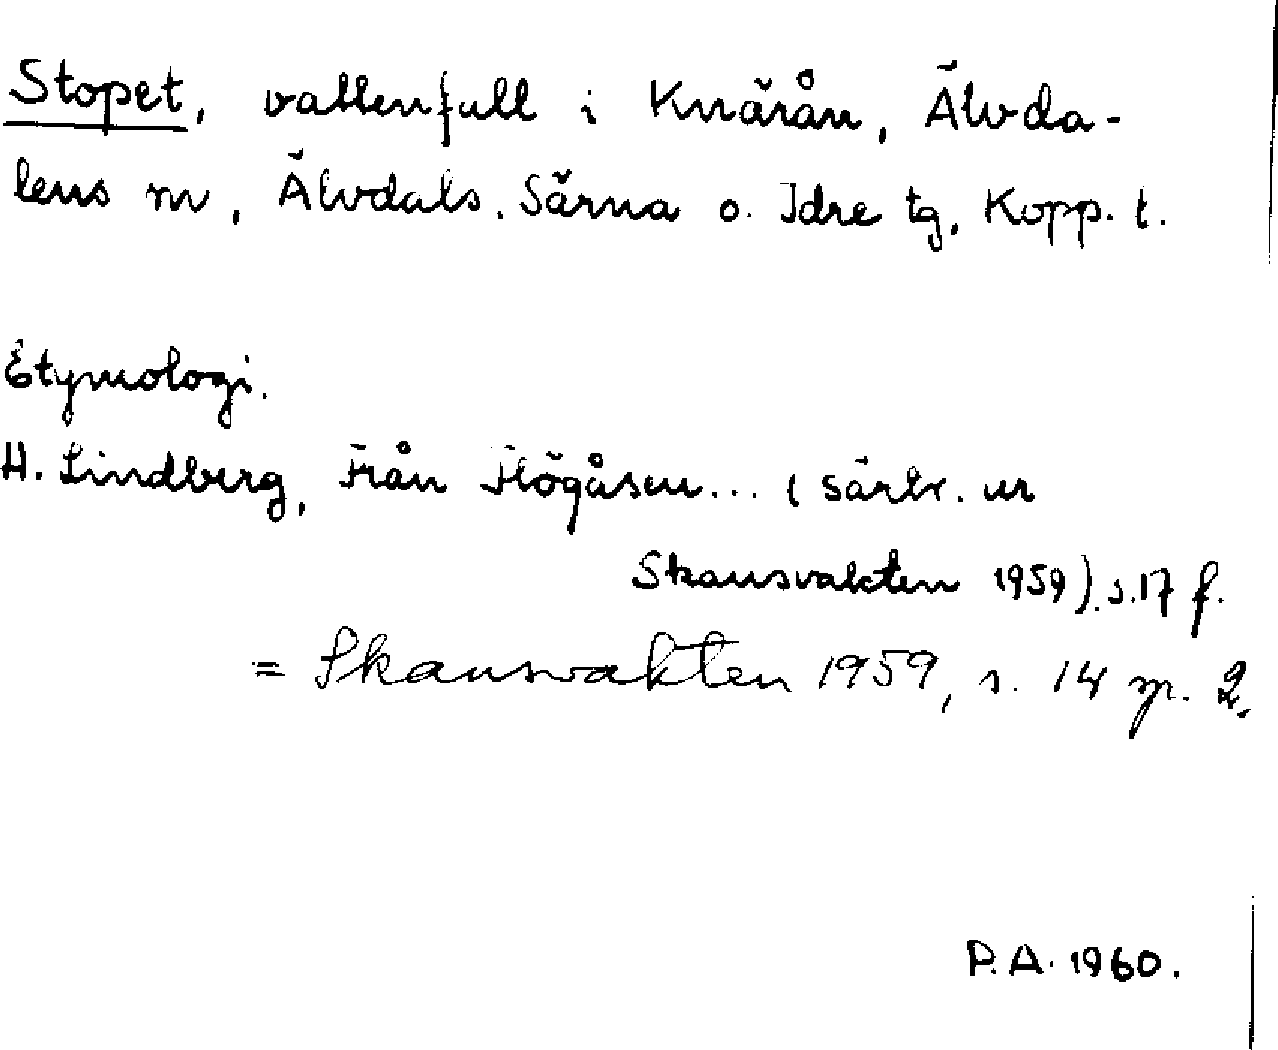 Stopet, vattenfall i Knärån, Älvda-
lens sn, Älvdals. Särna o. Idre tg, Kopp. l.
Etymologi.
H. Lindberg, Från Flögåsen... ( särtr. ur
Skansvakten 1959). s.17 f.
= Skansvakten 1959, s. 14 sp. 2.
P.A. 1960.